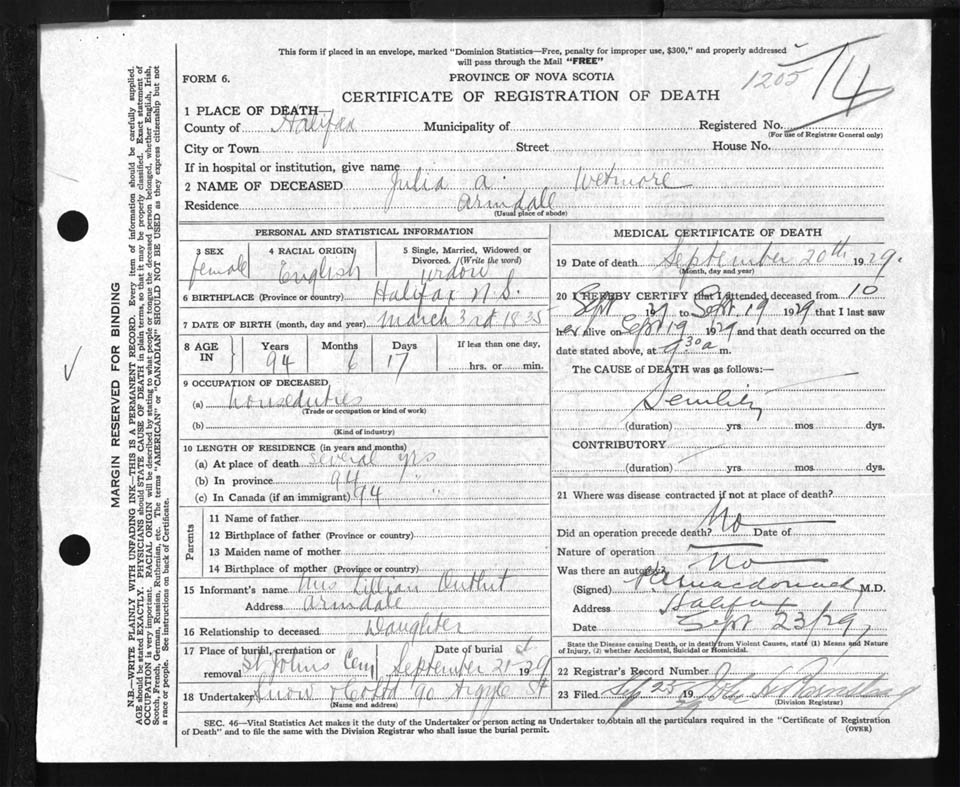 This form if placed in an envelope, marked "Dominion Statistics—Free, penalty for improper use, $300," and properly addressed
will pass through the Mail "FREE"
FORM 6.
PROVINCE OF NOVA SCOTIA
1205
CERTIFICATE OF REGISTRATION OF DEATH
1 PLACE OF DEATH
County of Halifax Municipality of Registered No.
(For use of Registrar General only)
City or Town Street House No.
If in hospital or institution, give name
2 NAME OF DECEASED Julia A. Wetmore
Residence Armdale
(Usual place of abode)
PERSONAL AND STATISTICAL INFORMATION
3 SEX 4 RACIAL ORIGIN 5 Single, Married, Widowed or
Divorced. (Write the word)
female English widow
6 BIRTHPLACE (Province or country) Halifax N.S.
7 DATE OF BIRTH (month, day and year) March 3rd 1835
8 AGE IN Years Months Days If less than one day,
94 6 17 hrs. or min.
9 OCCUPATION OF DECEASED
(a) houseduties
(Trade or occupation or kind of work)
(b)
(Kind of industry)
10 LENGTH OF RESIDENCE (in years and months)
(a) At place of death several yrs
(b) In province 94 "
(c) In Canada (if an immigrant) 94 "
Parents
11 Name of father
12 Birthplace of father (Province or country)
13 Maiden name of mother
14 Birthplace of mother (Province or country)
15 Informant's name Mrs Lillian
Address Armdale
16 Relationship to deceased Daughter
17 Place of burial, cremation or Date of burial
removal St Johns Cem September 21st 29
18 Undertaker Snow & Co Ltd 90 Argyle St
(Name and address)
MEDICAL CERTIFICATE OF DEATH
19 Date of death September 20th 1929.
(Month, day and year)
20 I HEREBY CERTIFY that I attended deceased from 10
Sept 29 to Sept. 19 1929 that I last saw
her alive on Sept 19 1929 and that death occurred on the
date stated above, at 9.30 a m.
The CAUSE of DEATH was as follows:—
Senility
(duration) yrs mos dys.
CONTRIBUTORY
(duration) yrs mos dys.
21 Where was disease contracted if not at place of death?
Did an operation precede death? No Date of
Nature of operation
Was there an autopsy No
(Signed) Macdonald M.D.
Address Halifax
Date Sept 23/29
State the Disease causing Death, or in death from Violent Causes, state (1) Means and Nature
of Injury, (2) whether Accidental, Suicidal or Homicidal.
22 Registrar's Record Number
23 Filed Sep 23 1929 John
(Division Registrar)
SEC. 46—Vital Statistics Act makes it the duty of the Undertaker or person acting as Undertaker to obtain all the particulars required in the "Certificate of Registration
of Death" and to file the same with the Division Registrar who shall issue the burial permit.
(OVER)
MARGIN RESERVED FOR BINDING
N.B.—WRITE PLAINLY WITH UNFADING INK—THIS IS A PERMANENT RECORD. Every item of information should be carefully supplied.
AGE should be stated EXACTLY. PHYSICIANS should STATE CAUSE OF DEATH in plain terms, so that it may be properly classified. Exact statement of
OCCUPATION is very important. RACIAL ORIGIN will be described by stating to what people or tongue the deceased person belonged, whether English, Irish,
Scotch, French, German, Russian, Ruthenian, etc. The terms "AMERICAN" or "CANADIAN" SHOULD NOT BE USED as they express citizenship but not
a race or people. See instructions on back of Certificate.